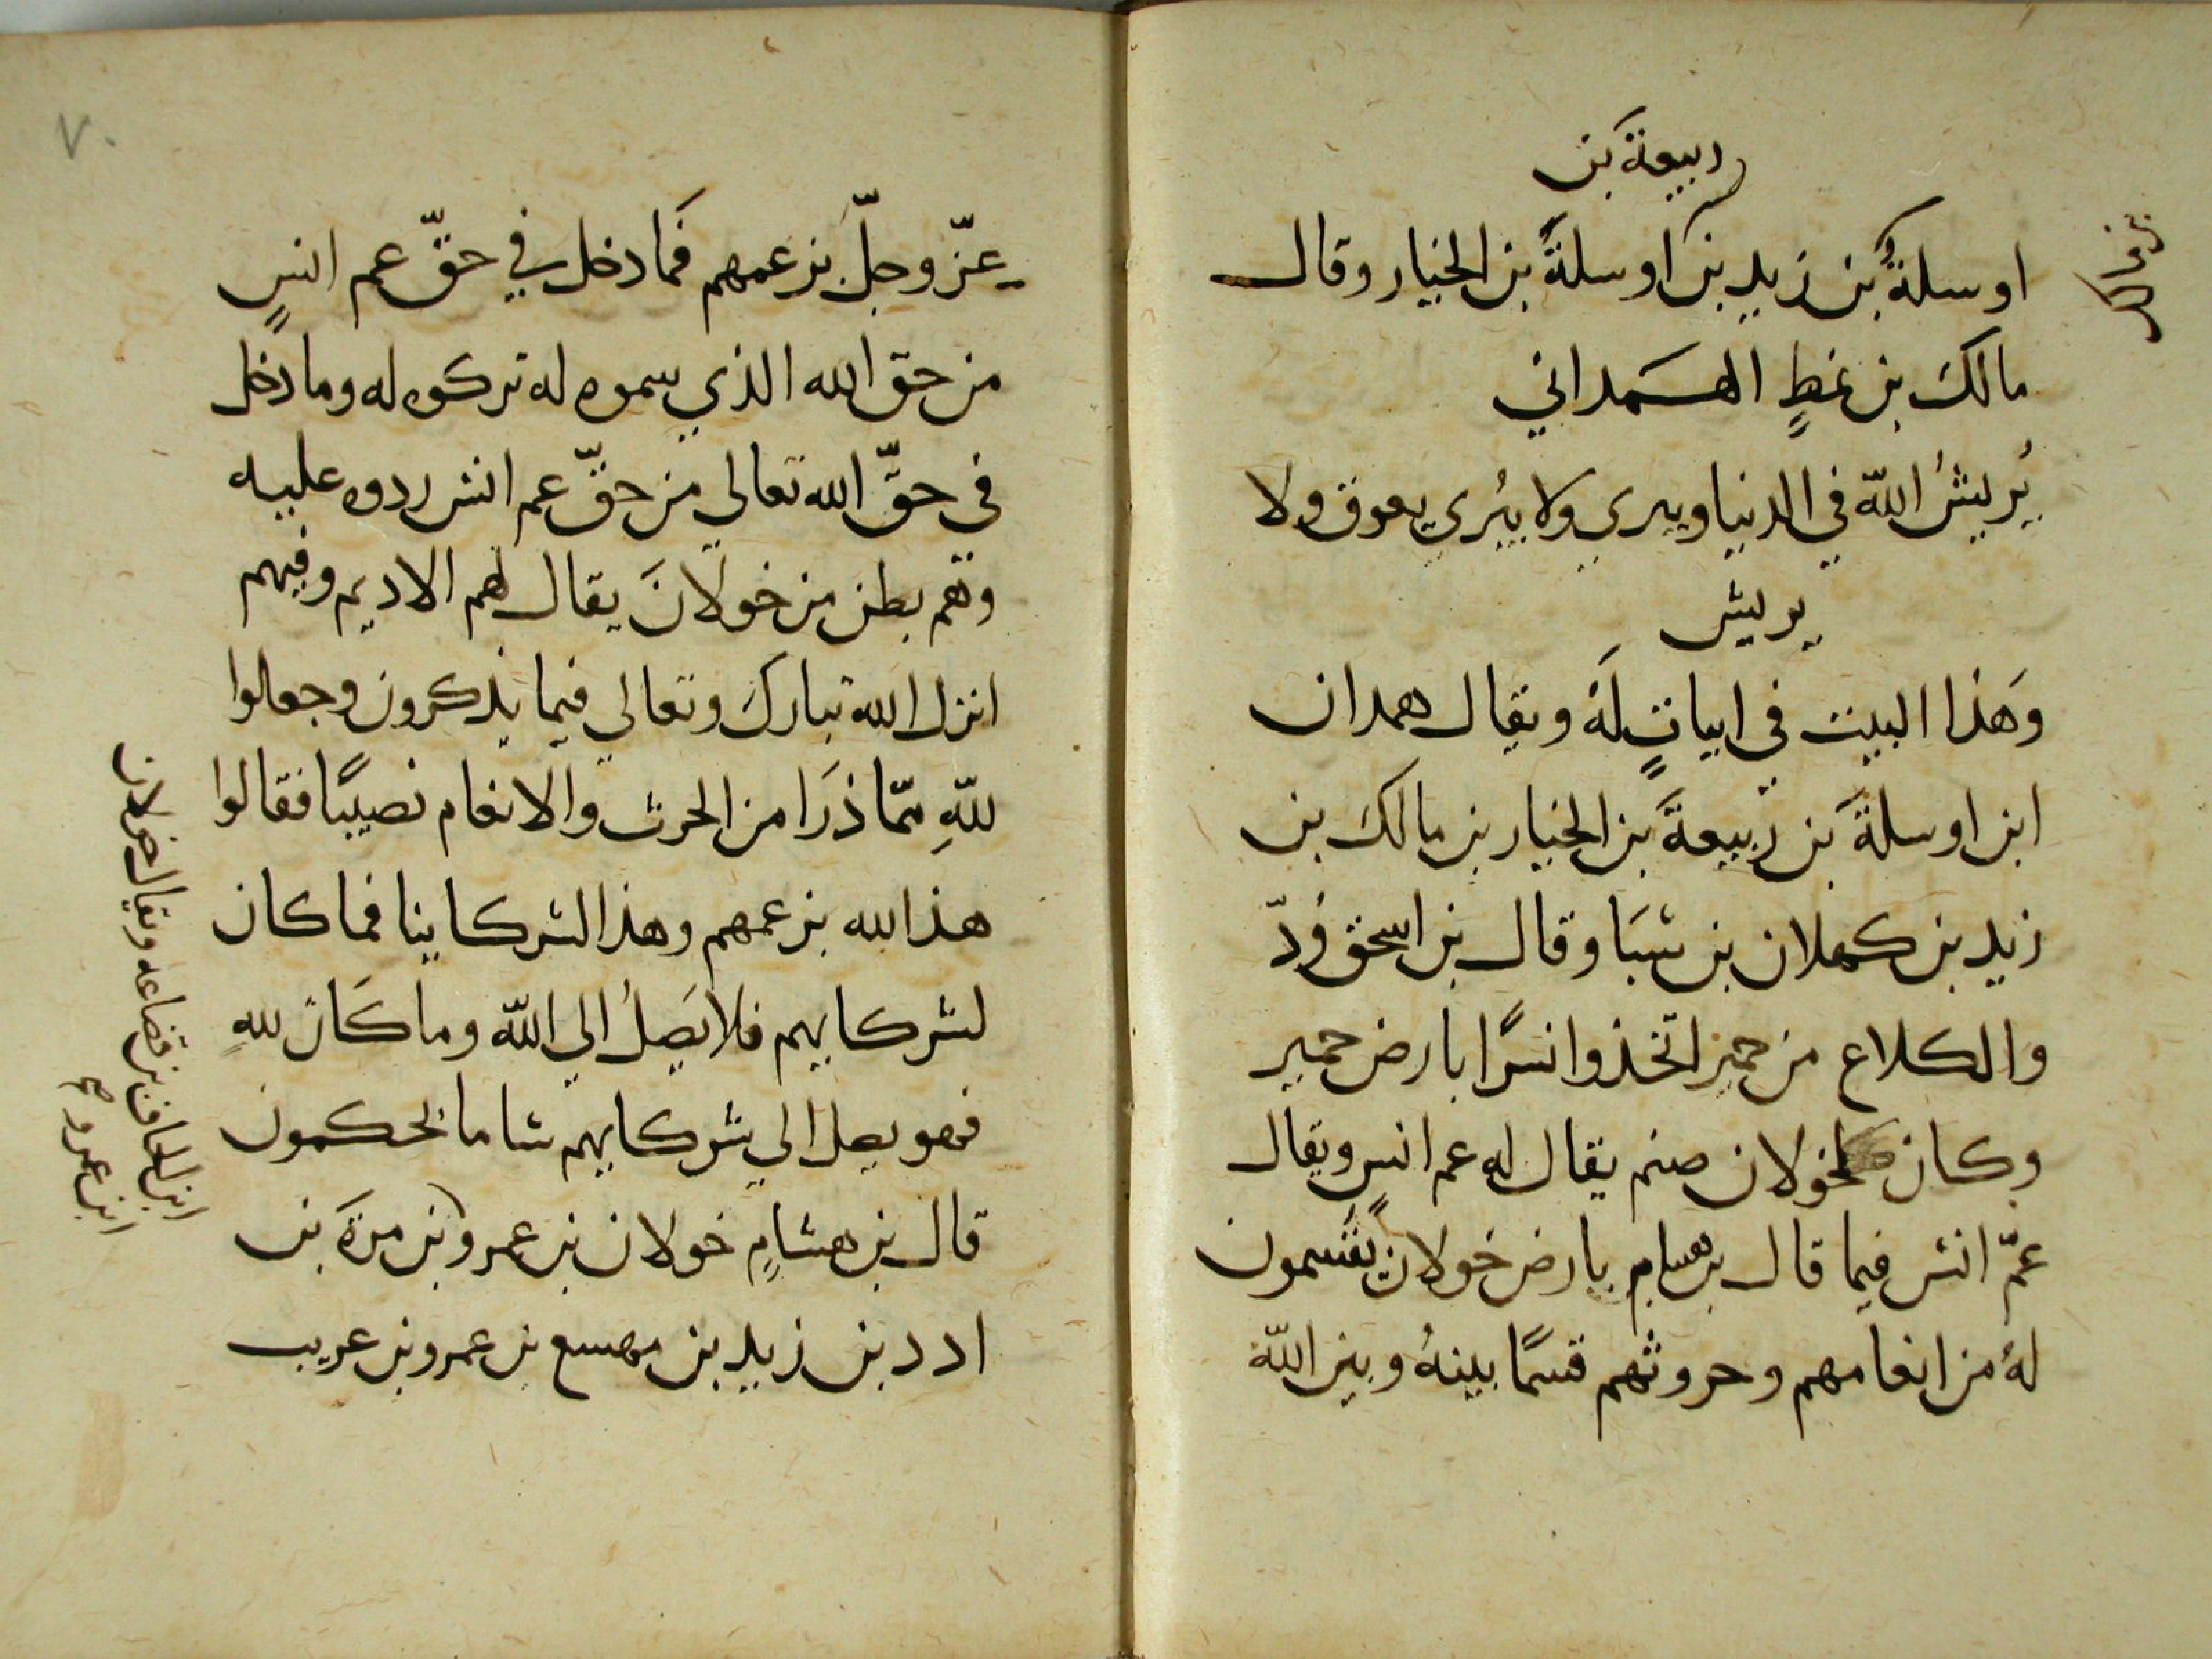 ربيعة بن
اوسلةُ بن زيد بن اوسلةَ بن الخيار وقال
مالك بن نمطٍ الهمداني
يُريشُ اللّه في الدنيا ويبري ولا يبُري يعوق ولا
يريش
وَهَذا البيت في ابياتٍ لَهُ ويقال همدان
ابن اوسلةَ بن ربيعةَ بن الخيار بن مالك بن
زيد بن كهلان بن سَبَا وقال بن اسحق وَدّ
والكلاع من حمير اتخذوا نسرًا بارض حمير
وكان لخولان صنم يقال له عم انسٍ ويقال
عمّ انس فيما قال بن هشام بارض خولان يقسمون
لهُ من انعامهم وحروثهم قسمًا بينهُ وبين اللّه
٧٠
عزّ وجلّ بزعمهم فَمَا دخل في حقّ عم انسٍ
من حق الله الذي سموه له تركوه له وما دخل
في حقِّ الله تعالي من حقّ عم انس ردوه عليه
وَهم بطن من خولانَ يقال لهم الاديم وفيهم
انزل الله تبارك وتعالي فيما يذكرون وجعلوا
للّهِ ممّا ذرَا من الحرث والانعام نصيبًا فقالوا
هذا لله بزعمهم وهذا لشركاينا فما كان
لشركايهم فلا يَصِلُ الي اللّه وما كَانَ للهِ
فهو يصل الي شركايهم سا ما يحكمون
قال بن هشامٍ خولان بن عمرو بن مرّةَ بن
ادد بن زيد بن مهسع بن عمرو بن عريب
ويقال خولان
ابن الحاف بن قضاعه
ابن عمرو